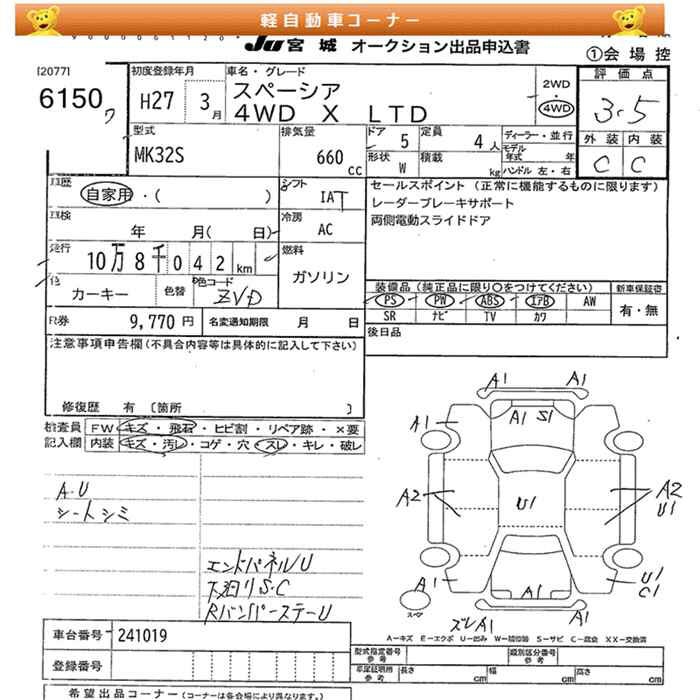 軽自動車コーナー
JU 宮城 オークション出品申込書
①会場控
[2077]
6150
初度登録年月
H27 3月
車名・グレード
スペーシア
4WD X LTD
2WD
・
4WD
評価点
3.5
外装 内装
C C
型式
MK32S
排気量
660 cc
ドア 5
形状 W
定員 4人
積載 kg
ディーラー・並行
モデル年式 年
ハンドル 左・右
車歴 自家用・( )
シフト IAT
セールスポイント(正常に機能するものに限ります)
レーダーブレーキサポート
両側電動スライドドア
車検 年 月( 日)
冷房 AC
走行 10万8千042km
燃料 ガソリン
色 カーキー 色替 色コード ZVD
装備品(純正品に限り○をつけてください)
新車保証書
PS PW ABS エアB AW
有・無
SR ナビ TV カワ
R券 9,770円 名変通知期限 月 日
後日品
注意事項申告欄(不具合内容等は具体的に記入して下さい)
修復歴 有 [箇所 ]
検査員 FW キズ・飛石・ヒビ割・リペア跡・×要
記入欄 内装 キズ・汚レ・コゲ・穴・スレ・キレ・破レ
A1 A1
A1 A1 S1
A・U
シートシミ
A2 U1 A2
U1
エンドパネルU
下廻りS・C
RバンパーステーU
A1 A1 U1
C1
スペア
ズレA1
A=キズ E=エクボ U=凹み W=補修跡 S=サビ C=腐食 XX=交換済
車台番号 241019
登録番号
型式指定番号 参考 類別区分番号 参考
車庫証明用 参考 長さ cm 幅 cm 高さ cm
希望出品コーナー(コーナーは各会場により異なります。)